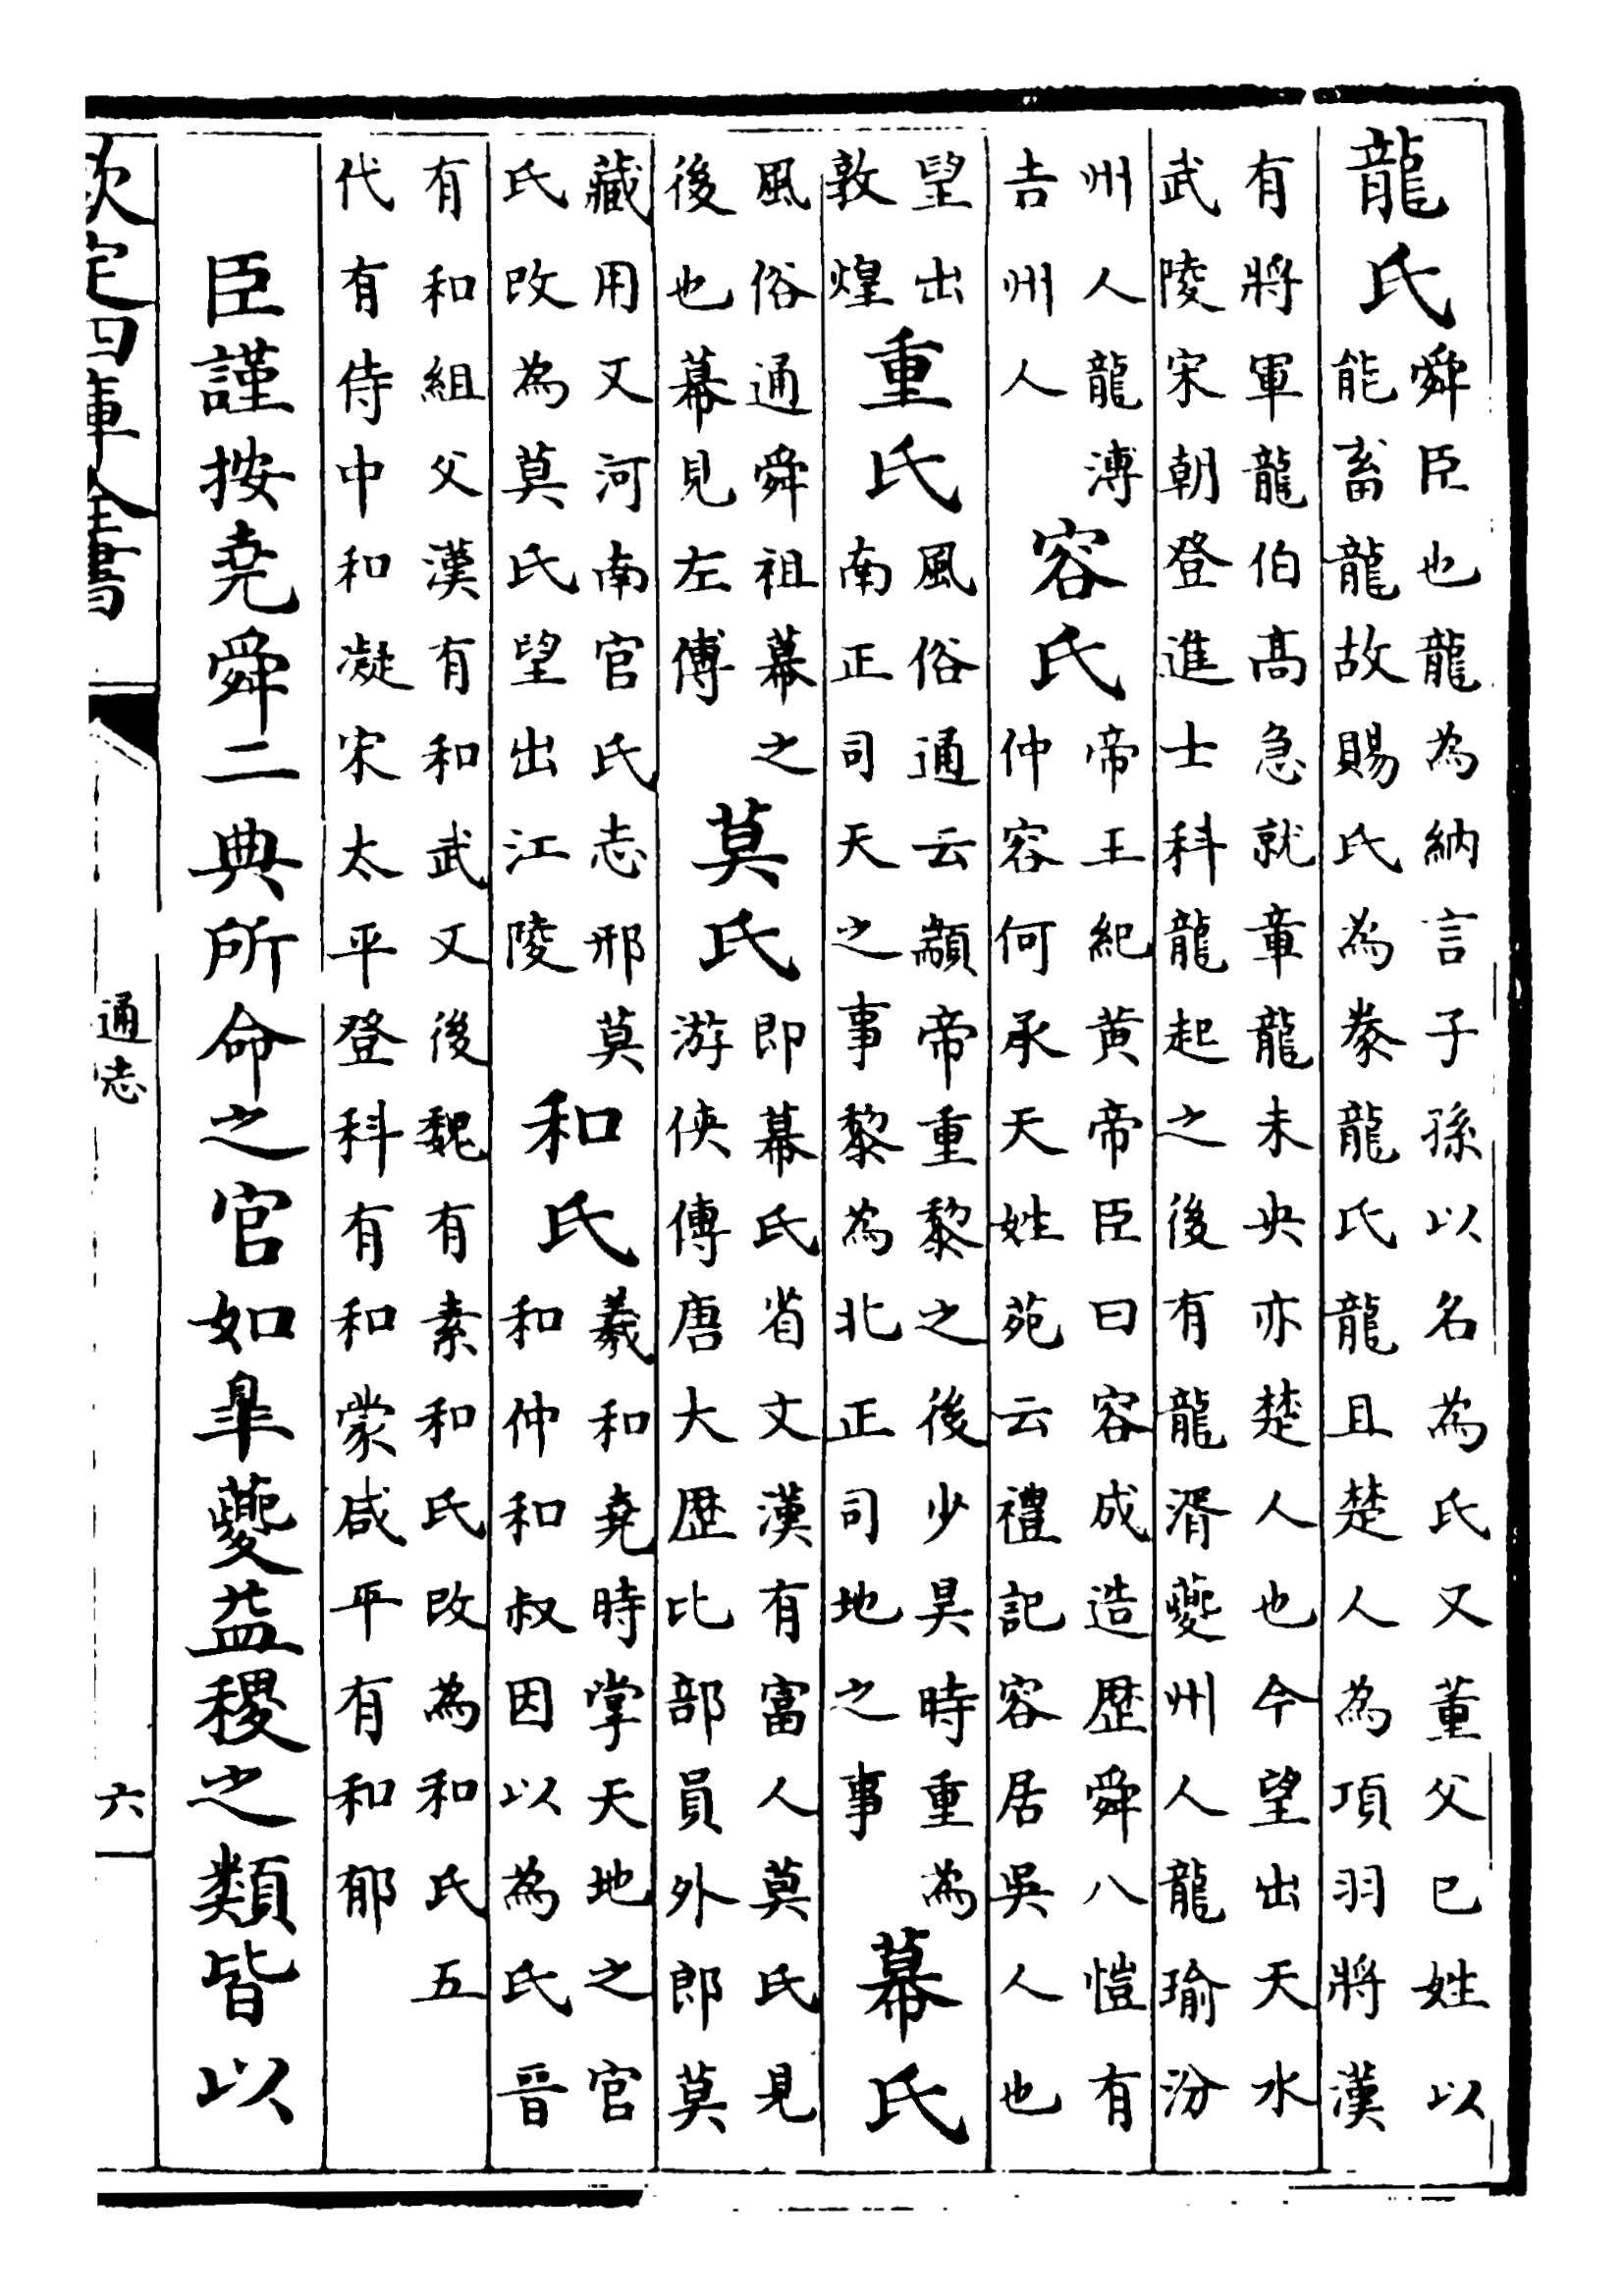 龍氏
舜臣也龍為納言子孫以名為氏又董父巳姓以
能畜龍故賜氏為豢龍氏龍且楚人為項羽將漢
有將軍龍伯高急就章龍未央亦楚人也今望出天水
武陵宋朝登進士科龍起之後有龍湑夔州人龍瑜汾
州人龍溥
吉州人
容氏
帝王紀黃帝臣曰容成造歴舜八愷有
仲容何承天姓苑云禮記容居吳人也
望出
敦煌
重氏
風俗通云顓帝重黎之後少昊時重為
南正司天之事黎為北正司地之事
幕氏
風俗通舜祖幕之
後也幕見左傳
莫氏
即幕氏省文漢有富人莫氏見
游俠傳唐大歴比部員外郎莫
藏用又河南官氏志邢莫
氏改為莫氏望出江陵
和氏
羲和堯時掌天地之官
和仲和叔因以為氏晉
有和組父漢有和武又後魏有素和氏改為和氏五
代有侍中和凝宋太平登科有和蒙咸平有和郁
臣謹按堯舜二典所命之官如臯夔益稷之類皆以
欽定四庫全書
通志
六